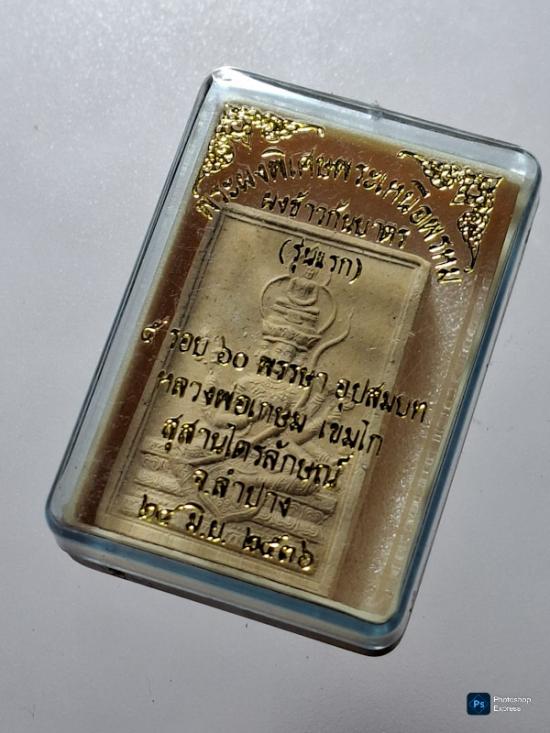 พระผงพิเศษพระเหนือพรหม
ผงข้าวก้นบาตร
(รุ่นแรก)
๕ รอบ ๖๐ พรรษา อุปสมบท
หลวงพ่อเกษม เขมโก
สุสานไตรลักษณ์
จ.ลำปาง
๒๘ มิ.ย. ๒๕๓๖
Ps Photoshop
Express